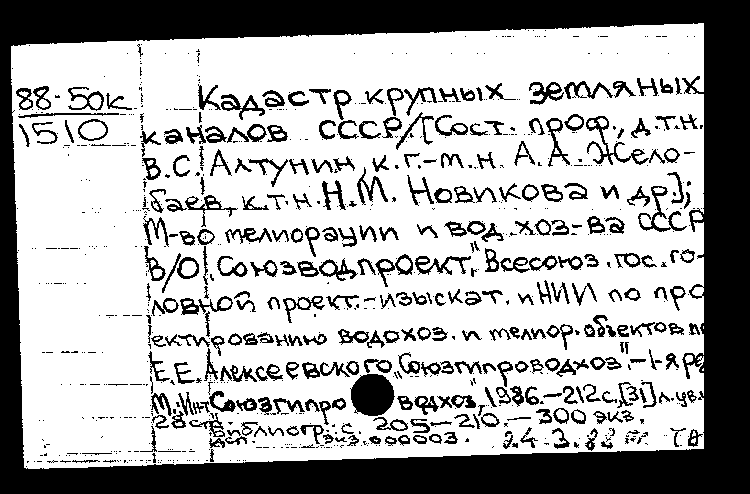 88-50к
1510
Кадастр крупных земляных
каналов СССР/[Сост. проф., д.т.н.
В.С. Алтунин, к.г.-м.н. А.А. Жело-
баев, к.т.н. Н.М. Новикова и др];
М-во мелиорации и вод. хоз-ва СССР
В/О „Союзводпроект", Всесоюз. гос. го-
ловной проект.-изыскат. и НИИ по про
ектированию водохоз. и мелиор. объектов
Е.Е. Алексеевского „Союзгипроводхоз".-1-я ред
М.: Союзгипро водхоз, 1986.-212с., [31] л.
28см Библиогр.: с. 205-210. - 300 экз.
экз. 000003. 24.3.88